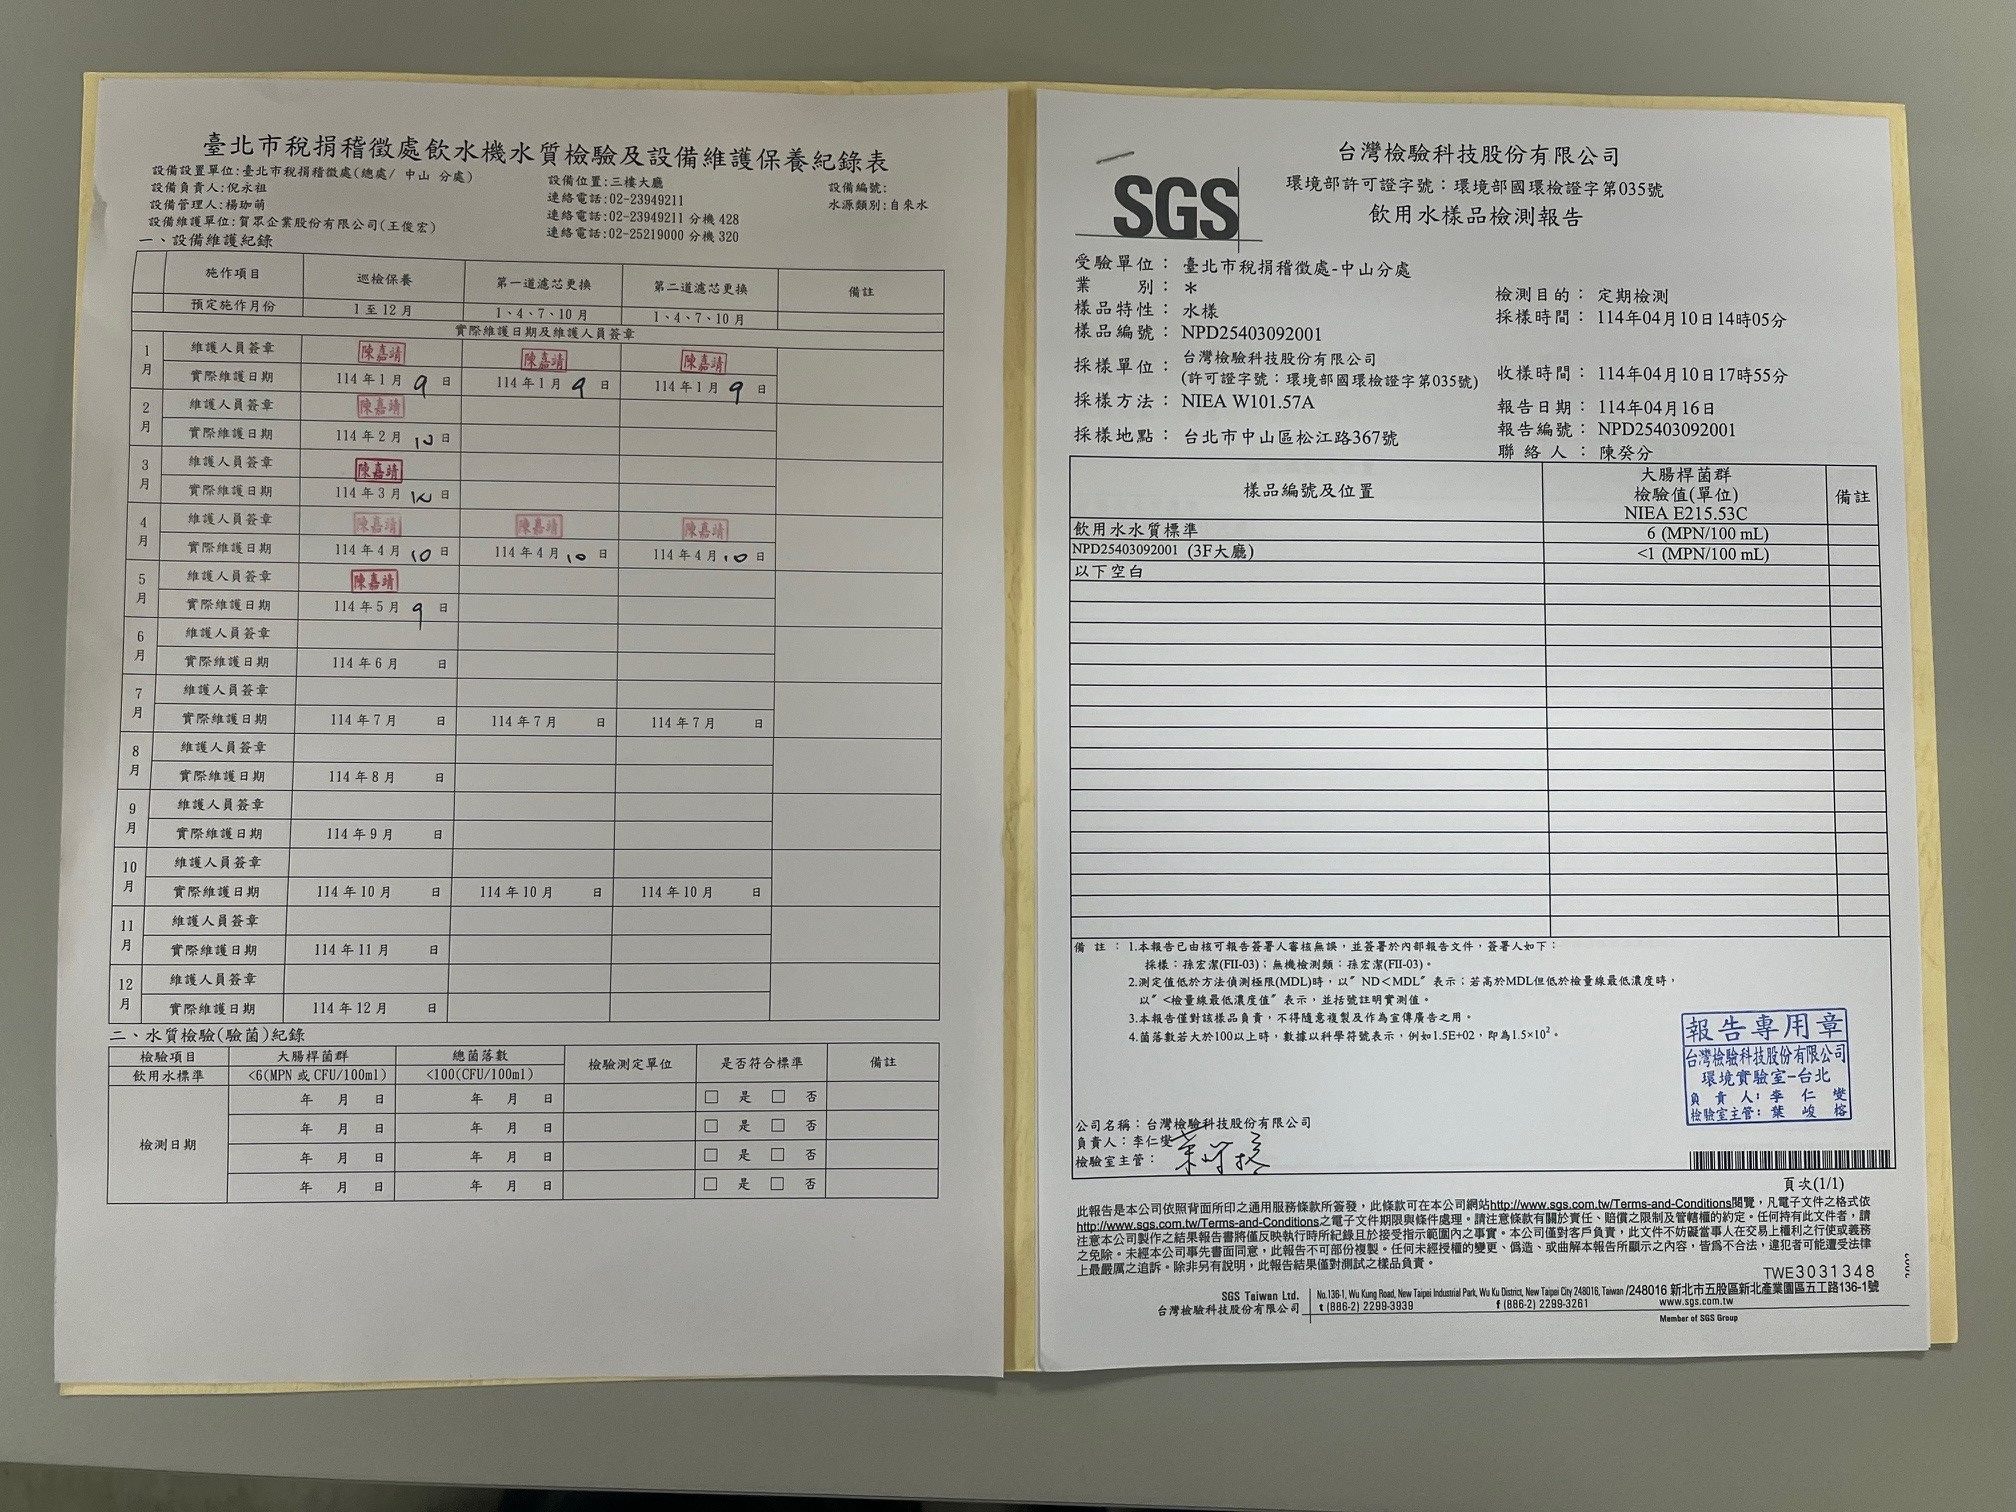 臺北市稅捐稽徵處飲水機水質檢驗及設備維護保養紀錄表
設備設置單位:臺北市稅捐稽徵處(總處/ 中山 分處)
設備負責人:倪永祖
設備管理人:楊珈萌
設備維護單位:賀眾企業股份有限公司(王俊宏)
設備位置:三樓大廳
連絡電話:02-23949211
連絡電話:02-23949211 分機 428
連絡電話:02-25219000 分機 320
設備編號:
水源類別:自來水
一、設備維護紀錄
施作項目 巡檢保養 第一道濾芯更換 第二道濾芯更換 備註
預定施作月份 1 至 12 月 1、4、7、10 月 1、4、7、10 月
實際維護日期及維護人員簽章
1月 維護人員簽章 陳嘉靖 陳嘉靖 陳嘉靖
實際維護日期 114 年 1 月 9 日 114 年 1 月 9 日 114 年 1 月 9 日
2月 維護人員簽章 陳嘉靖
實際維護日期 114 年 2 月 10 日
3月 維護人員簽章 陳嘉靖
實際維護日期 114 年 3 月 日
4月 維護人員簽章 陳嘉靖 陳嘉靖 陳嘉靖
實際維護日期 114 年 4 月 10 日 114 年 4 月 10 日 114 年 4 月 10 日
5月 維護人員簽章 陳嘉靖
實際維護日期 114 年 5 月 9 日
6月 維護人員簽章
實際維護日期 114 年 6 月 日
7月 維護人員簽章
實際維護日期 114 年 7 月 日 114 年 7 月 日 114 年 7 月 日
8月 維護人員簽章
實際維護日期 114 年 8 月 日
9月 維護人員簽章
實際維護日期 114 年 9 月 日
10月 維護人員簽章
實際維護日期 114 年 10 月 日 114 年 10 月 日 114 年 10 月 日
11月 維護人員簽章
實際維護日期 114 年 11 月 日
12月 維護人員簽章
實際維護日期 114 年 12 月 日
二、水質檢驗(驗菌)紀錄
檢驗項目 大腸桿菌群 總菌落數 檢驗測定單位 是否符合標準 備註
飲用水標準 <6(MPN 或 CFU/100ml) <100(CFU/100ml)
檢測日期
年 月 日 年 月 日 □ 是 □ 否
年 月 日 年 月 日 □ 是 □ 否
年 月 日 年 月 日 □ 是 □ 否
年 月 日 年 月 日 □ 是 □ 否
SGS
台灣檢驗科技股份有限公司
環境部許可證字號：環境部國環檢證字第035號
飲用水樣品檢測報告
受驗單位： 臺北市稅捐稽徵處-中山分處
業 別： *
樣品特性： 水樣
樣品編號： NPD25403092001
採樣單位： 台灣檢驗科技股份有限公司
(許可證字號：環境部國環檢證字第035號)
採樣方法： NIEA W101.57A
採樣地點： 台北市中山區松江路367號
檢測目的： 定期檢測
採樣時間： 114年04月10日14時05分
收樣時間： 114年04月10日17時55分
報告日期： 114年04月16日
報告編號： NPD25403092001
聯 絡 人： 陳癸分
樣品編號及位置 大腸桿菌群 檢驗值(單位) NIEA E215.53C 備註
飲用水水質標準 6 (MPN/100 mL)
NPD25403092001 (3F大廳) <1 (MPN/100 mL)
以下空白
備 註：1.本報告已由核可報告簽署人審核無誤，並簽署於內部報告文件，簽署人如下：
採樣：孫宏潔(FII-03)；無機檢測類：孫宏潔(FII-03)。
2.測定值低於方法偵測極限(MDL)時，以" ND<MDL" 表示；若高於MDL但低於檢量線最低濃度時，
以" <檢量線最低濃度值" 表示，並括號註明實測值。
3.本報告僅對該樣品負責，不得隨意複製及作為宣傳廣告之用。
4.菌落數若大於100以上時，數據以科學符號表示，例如1.5E+02，即為1.5×10²。
報告專用章
台灣檢驗科技股份有限公司
環境實驗室-台北
負 責 人：李 仁 燮
檢驗室主管：葉 峻 榕
公司名稱：台灣檢驗科技股份有限公司
負責人：李仁燮
檢驗室主管：
頁次(1/1)
此報告是本公司依照背面所印之通用服務條款所簽發，此條款可在本公司網站http://www.sgs.com.tw/Terms-and-Conditions閱覽，凡電子文件之格式依
http://www.sgs.com.tw/Terms-and-Conditions之電子文件期限與條件處理。請注意條款有關於責任、賠償之限制及管轄權的約定。任何持有此文件者，請
注意本公司製作之結果報告書將僅反映執行時所紀錄且於接受指示範圍內之事實。本公司僅對客戶負責，此文件不妨礙當事人在交易上權利之行使或義務
之免除。未經本公司事先書面同意，此報告不可部份複製。任何未經授權的變更、偽造、或曲解本報告所顯示之內容，皆為不合法，違犯者可能遭受法律
上最嚴厲之追訴。除非另有說明，此報告結果僅對測試之樣品負責。
TWE3031348
SGS Taiwan Ltd. No.136-1, Wu Kung Road, New Taipei Industrial Park, Wu Ku District, New Taipei City 248016, Taiwan /248016 新北市五股區新北產業園區五工路136-1號
台灣檢驗科技股份有限公司 t (886-2) 2299-3939 f (886-2) 2299-3261 www.sgs.com.tw
Member of SGS Group